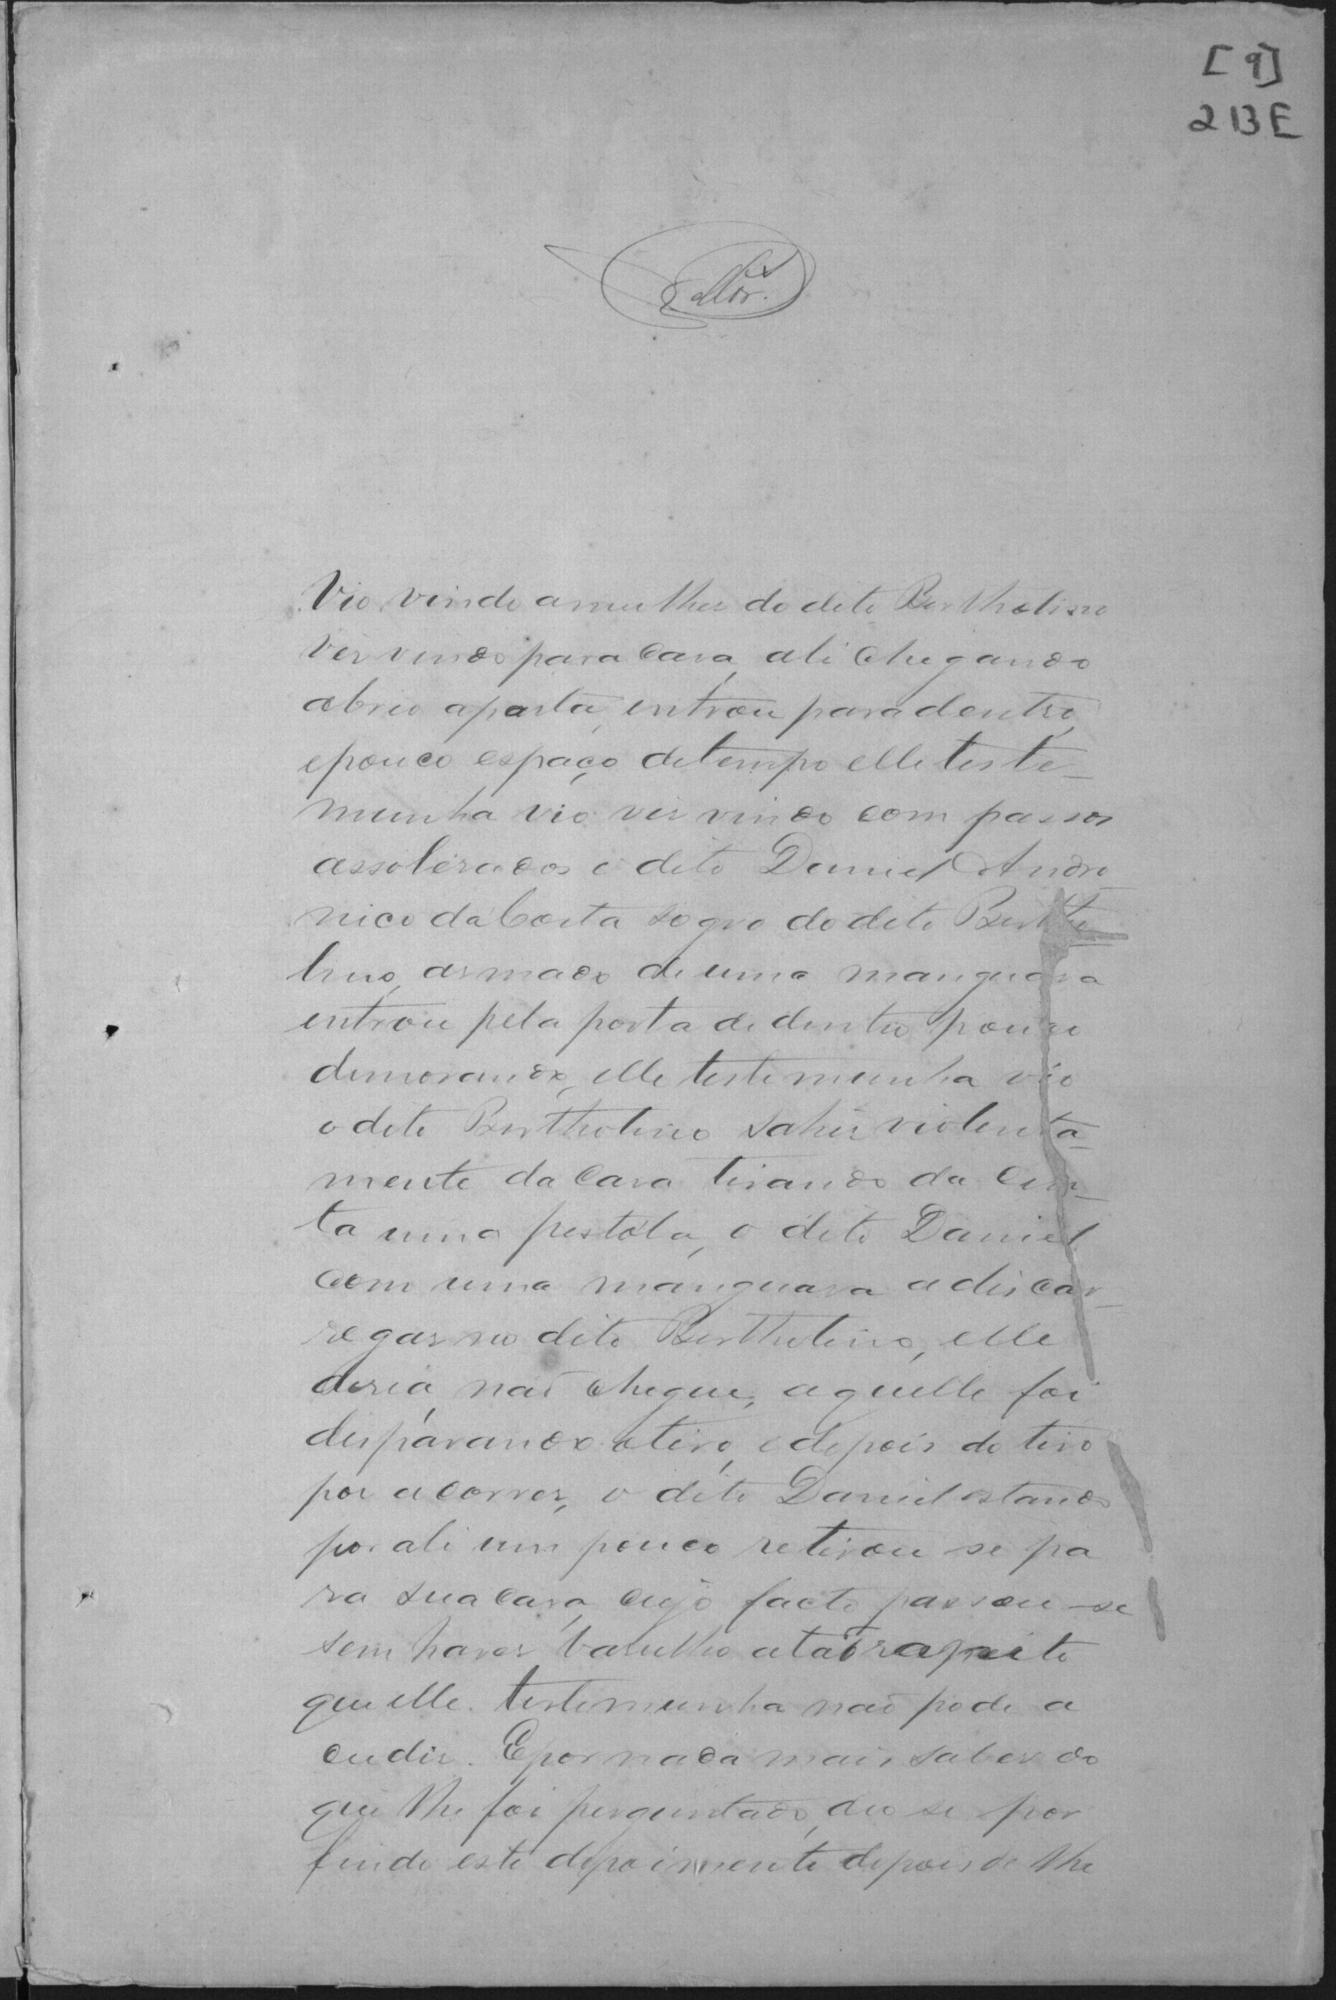 [9]
213E
Vio vindo a mulher do dito Bertholino
vir vindo para casa, ali chegando
abrio aporta, entrou paradentro,
epouco espaço detempo elle teste-
munha vio vir vindo com passos
assolerados o dito Daniel Andro
nico da Costa sogro do dito Bertho
lino, armado de uma manguara
entrou pela porta de dentro pouco
demorando, elle testemunha vio
o dito Bertholino sahir violenta-
mente da casa tirando da cin-
ta uma pistola, o dito Daniel
com uma manguara a discar-
regar no dito Bertholino, elle
disia, não chegue, aquelle foi
disparando otiro, e depois do tiro
pos acorrer, o dito Daniel estando
por ali um pouco retirou se pa
ra suacasa, cujo facto passou-se
sem haver barulho a tão rapeito
que elle testemunha não pode a
cudir. Epor nada mais saber do
que lhe foi perguntado, deo se por
findo este depoimento depois de lhe